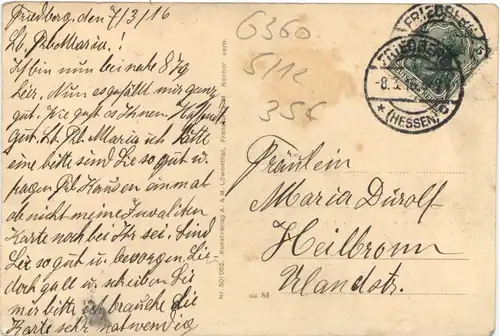 Friedberg, den 7/3/16
Lb. Frl. Maria!
Ich bin nun bei nahe 8 Tg
hier. Nun es gefällt mir ganz
gut. Wie gest es Ihnen,
gut. Lb. Frl. Maria ich hätte
eine bitte seind Sie so gut u.
fragen Frl. einmal
ob nicht meine Invaliten
Karte noch bei Ihr sei. Sind
Sie so gut u. besorgen Sie
doch u. schreiben Sie
mir bitte ich brauche die
Karte sehr notwendig
6360
5/12
35
Nr. 501052, Kunstverlag A. & M. Löwenthal, Nachdr. verb.
FRIEDBERG
FRIEDBERG
-8.3.16
*(HESSEN)*
Fräulein
Maria Dürolf
Heilbronn
Ulandstr.